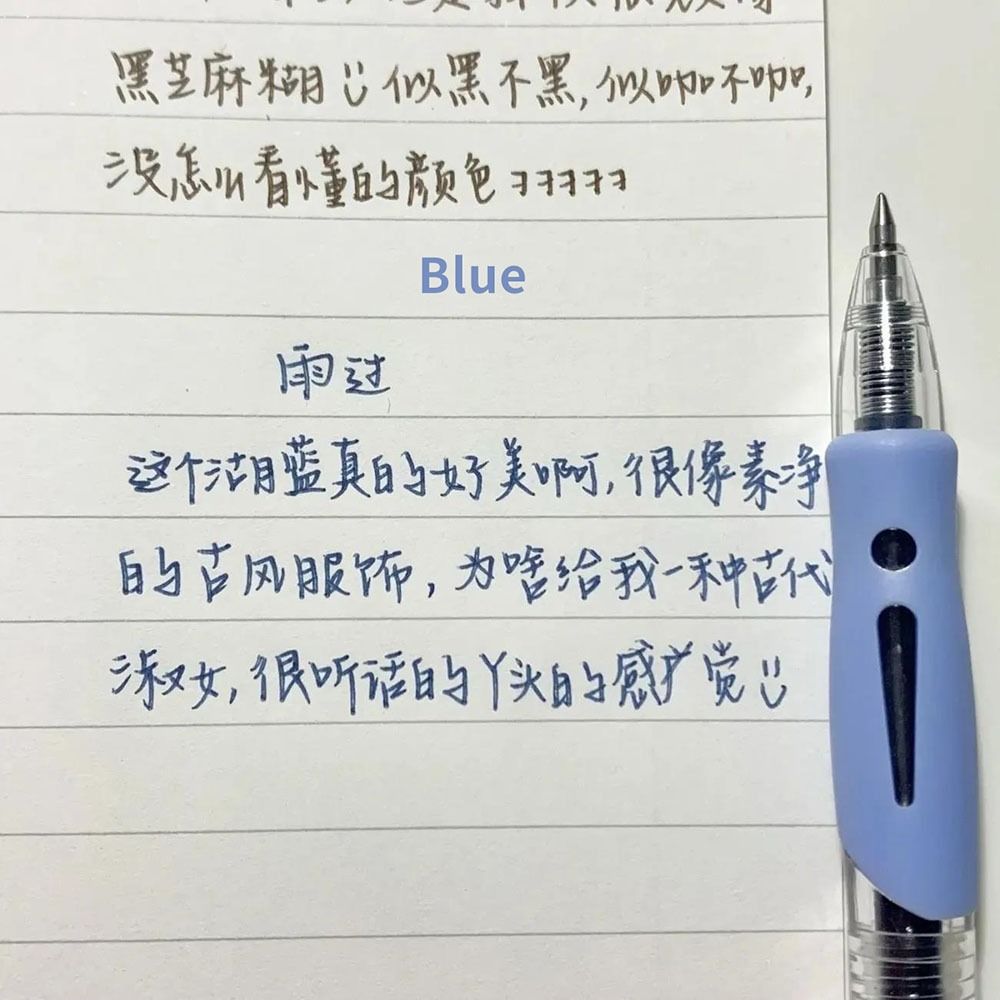 黑芝麻糊似黑不黑,似咖不咖,
没怎么看懂的颜色ヨヨヨヨヨ
Blue
雨过
这个湖蓝真的好美啊,很像素净
的古风服饰,为啥给我一种古代
淑女,很听话的丫头的感觉